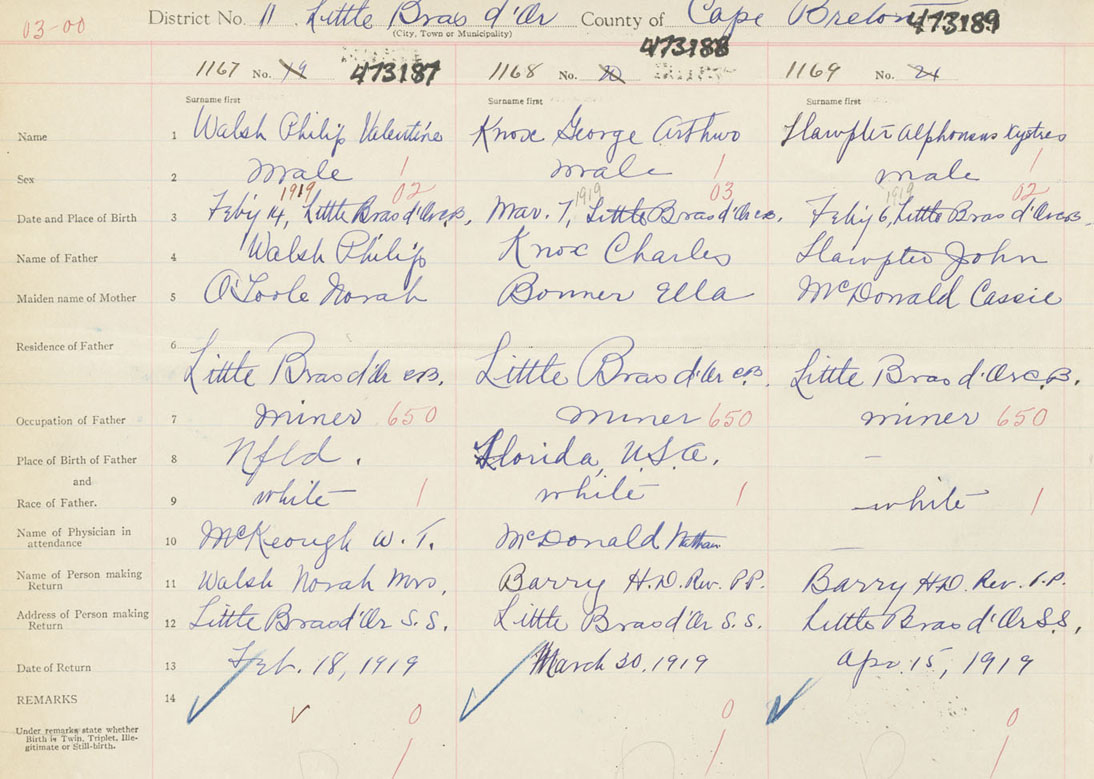 03-00 District No. 11 Little Bras d'Or County of Cape Breton 473189
(City, Town or Municipality)
473188
1167 No. 19 473187 1168 No. 20 1169 No. 21
Surname first Surname first Surname first
Name 1 Walsh Philip Valentine Knox George Arthur Alphonsus
Sex 2 male 1 male 1 male 1
1919 02 1919 03 1919 02
Date and Place of Birth 3 Feb'y 14, Little Bras d'Or C.B. Mar. 7, Little Bras d'Or C.B. Feb'y 6, Little Bras d'Or C.B.
Name of Father 4 Walsh Philip Knox Charles John
Maiden name of Mother 5 O'Toole Norah Bonner Ella McDonald Cassie
Residence of Father 6
Little Bras d'Or C.B. Little Bras d'Or C.B. Little Bras d'Or C.B.
Occupation of Father 7 miner 650 miner 650 miner 650
Place of Birth of Father 8 Nfld. Florida, U.S.A. –
and
Race of Father. 9 white 1 white 1 white 1
Name of Physician in
attendance 10 McKeough W. T. McDonald Nathan —
Name of Person making
Return 11 Walsh Norah Mrs. Barry H.D. Rev. P.P. Barry H.D. Rev. P.P.
Address of Person making
Return 12 Little Bras d'Or S.S. Little Bras d'Or S.S. Little Bras d'Or S.S.
Date of Return 13 Feb. 18, 1919 March 20, 1919 Apr. 15, 1919
REMARKS 14
0 0 0
Under remarks state whether
Birth is Twin, Triplet, Ille-
gitimate or Still-birth.
1 1 1